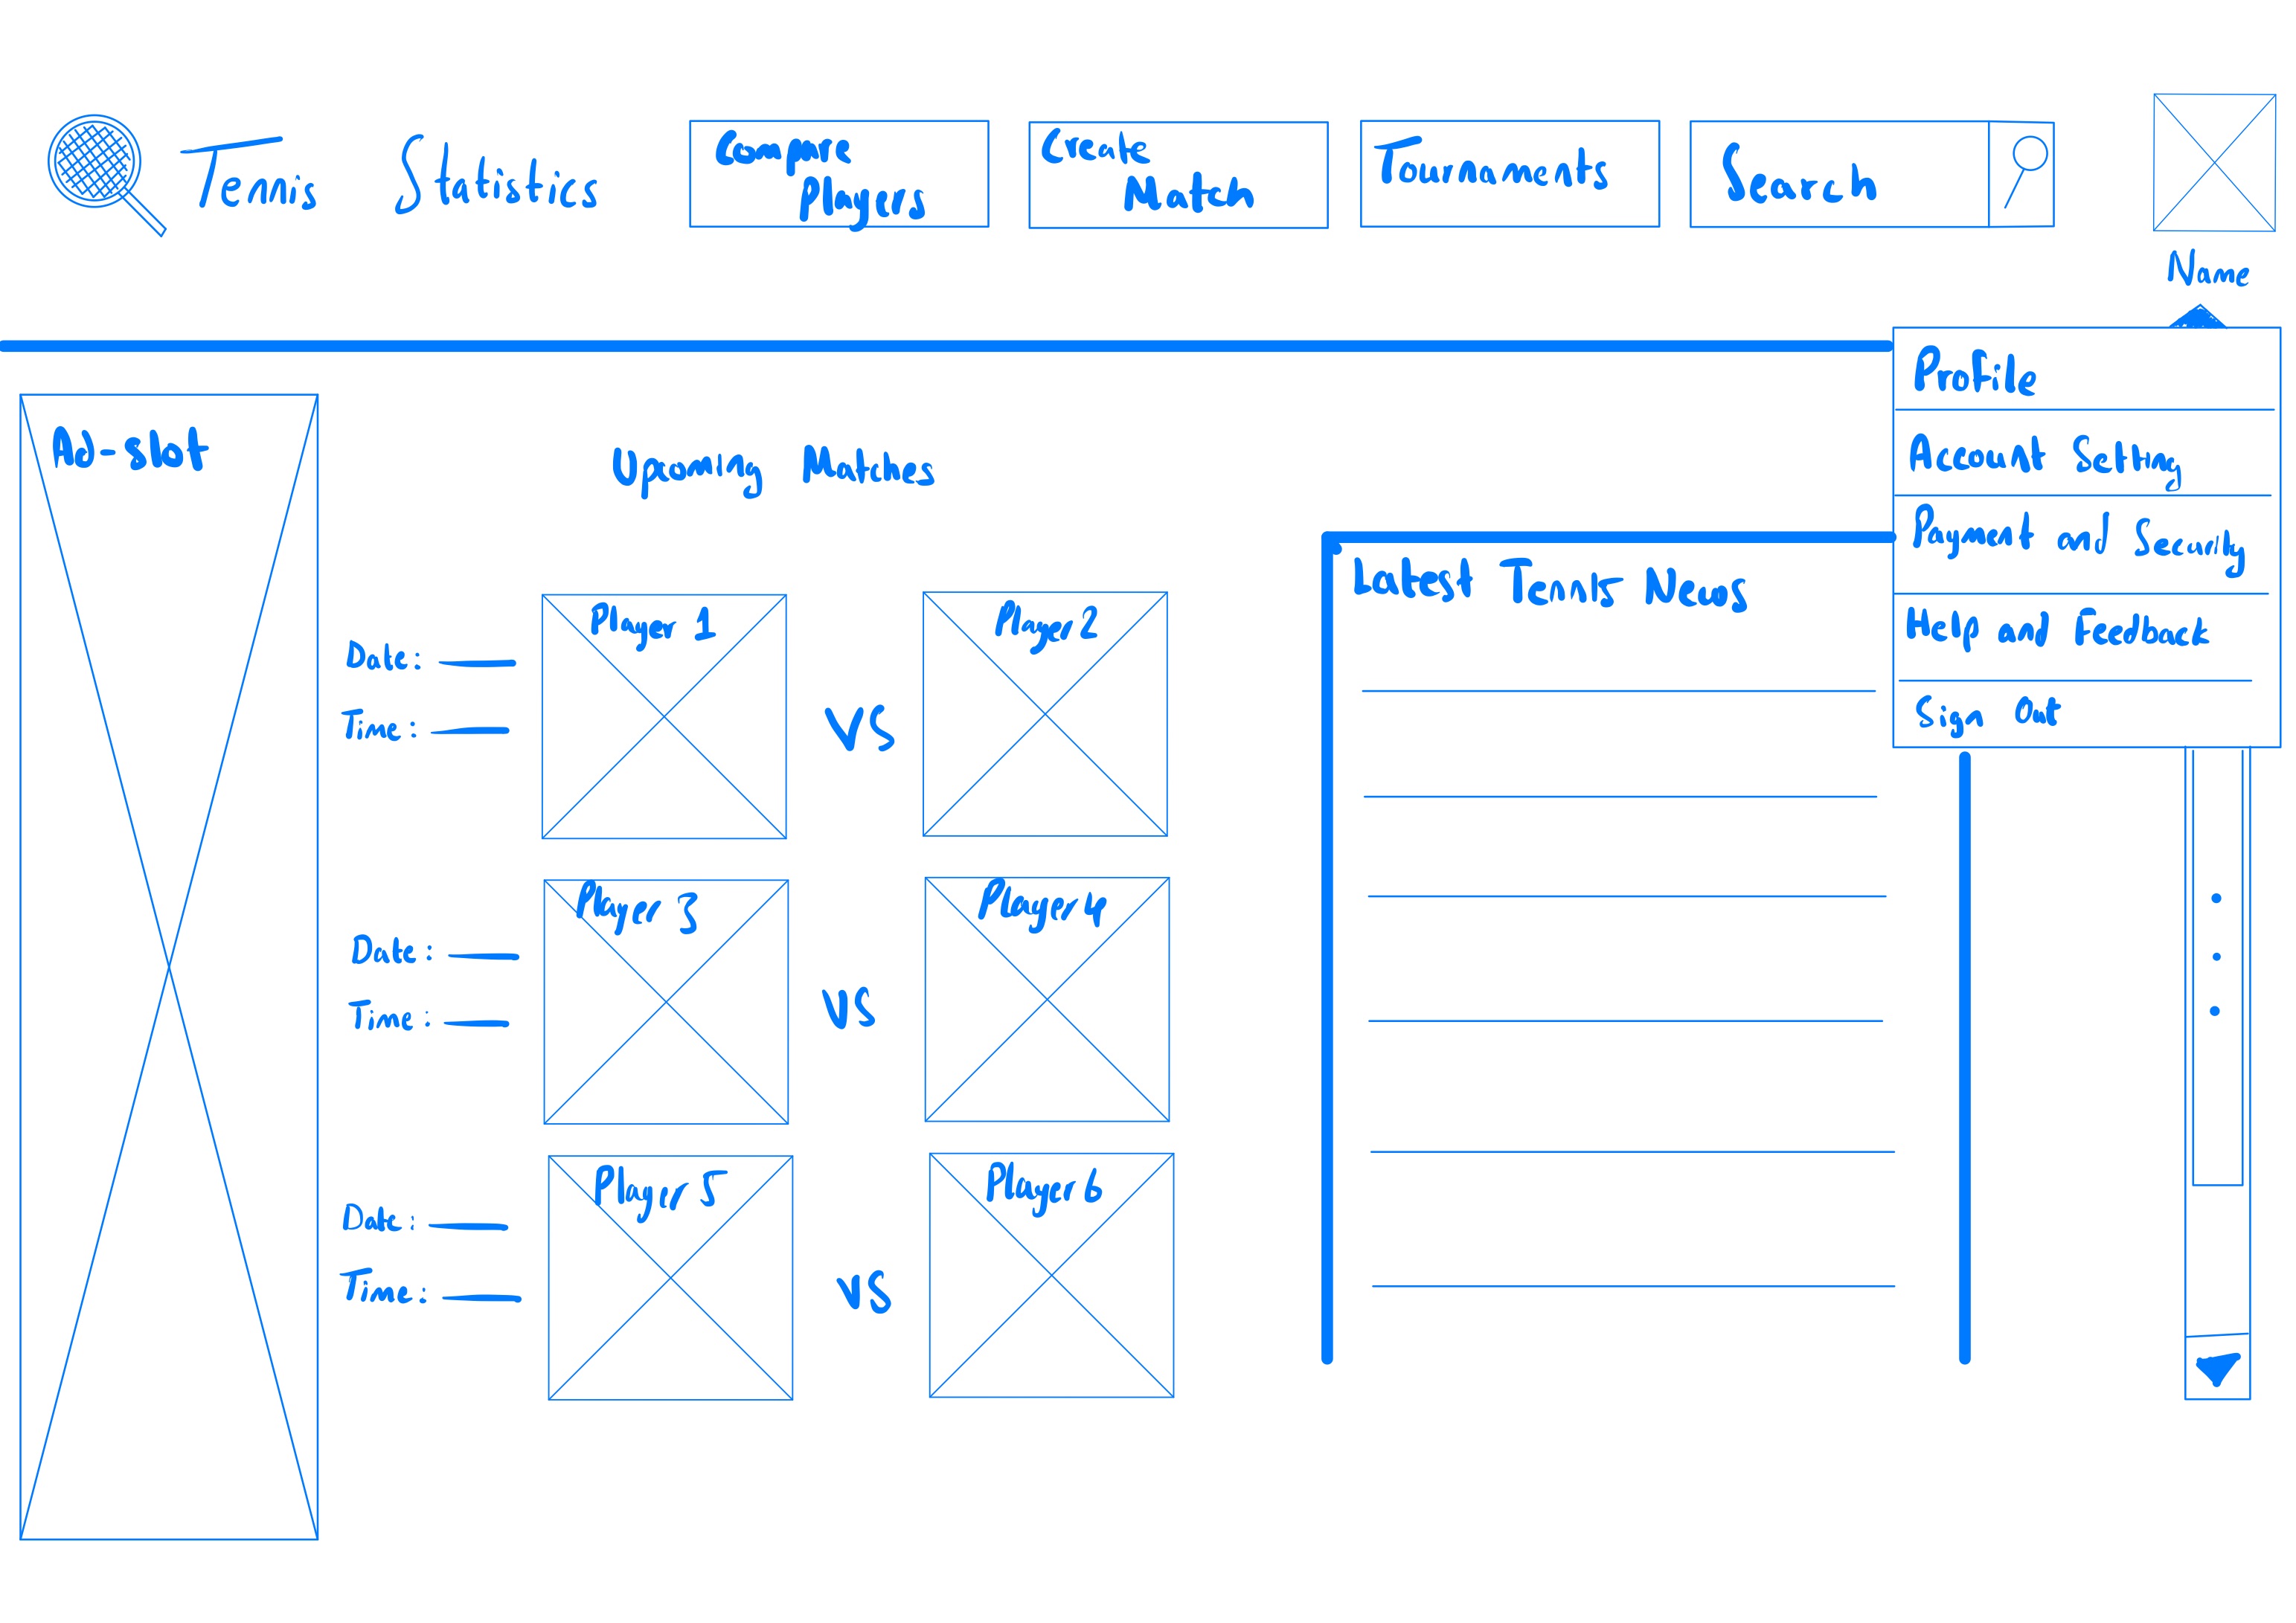 Tennis Statistics
Compare
Players
Create
Match
Tournaments
Search
Name
Profile
Account Setting
Payment and Security
Help and Feedback
Sign Out
Ad-slot
Upcoming Matches
Date:
Time:
Player 1
VS
Player 2
Date:
Time:
Player 3
VS
Player 4
Date:
Time:
Player 5
VS
Player 6
Latest Tennis News